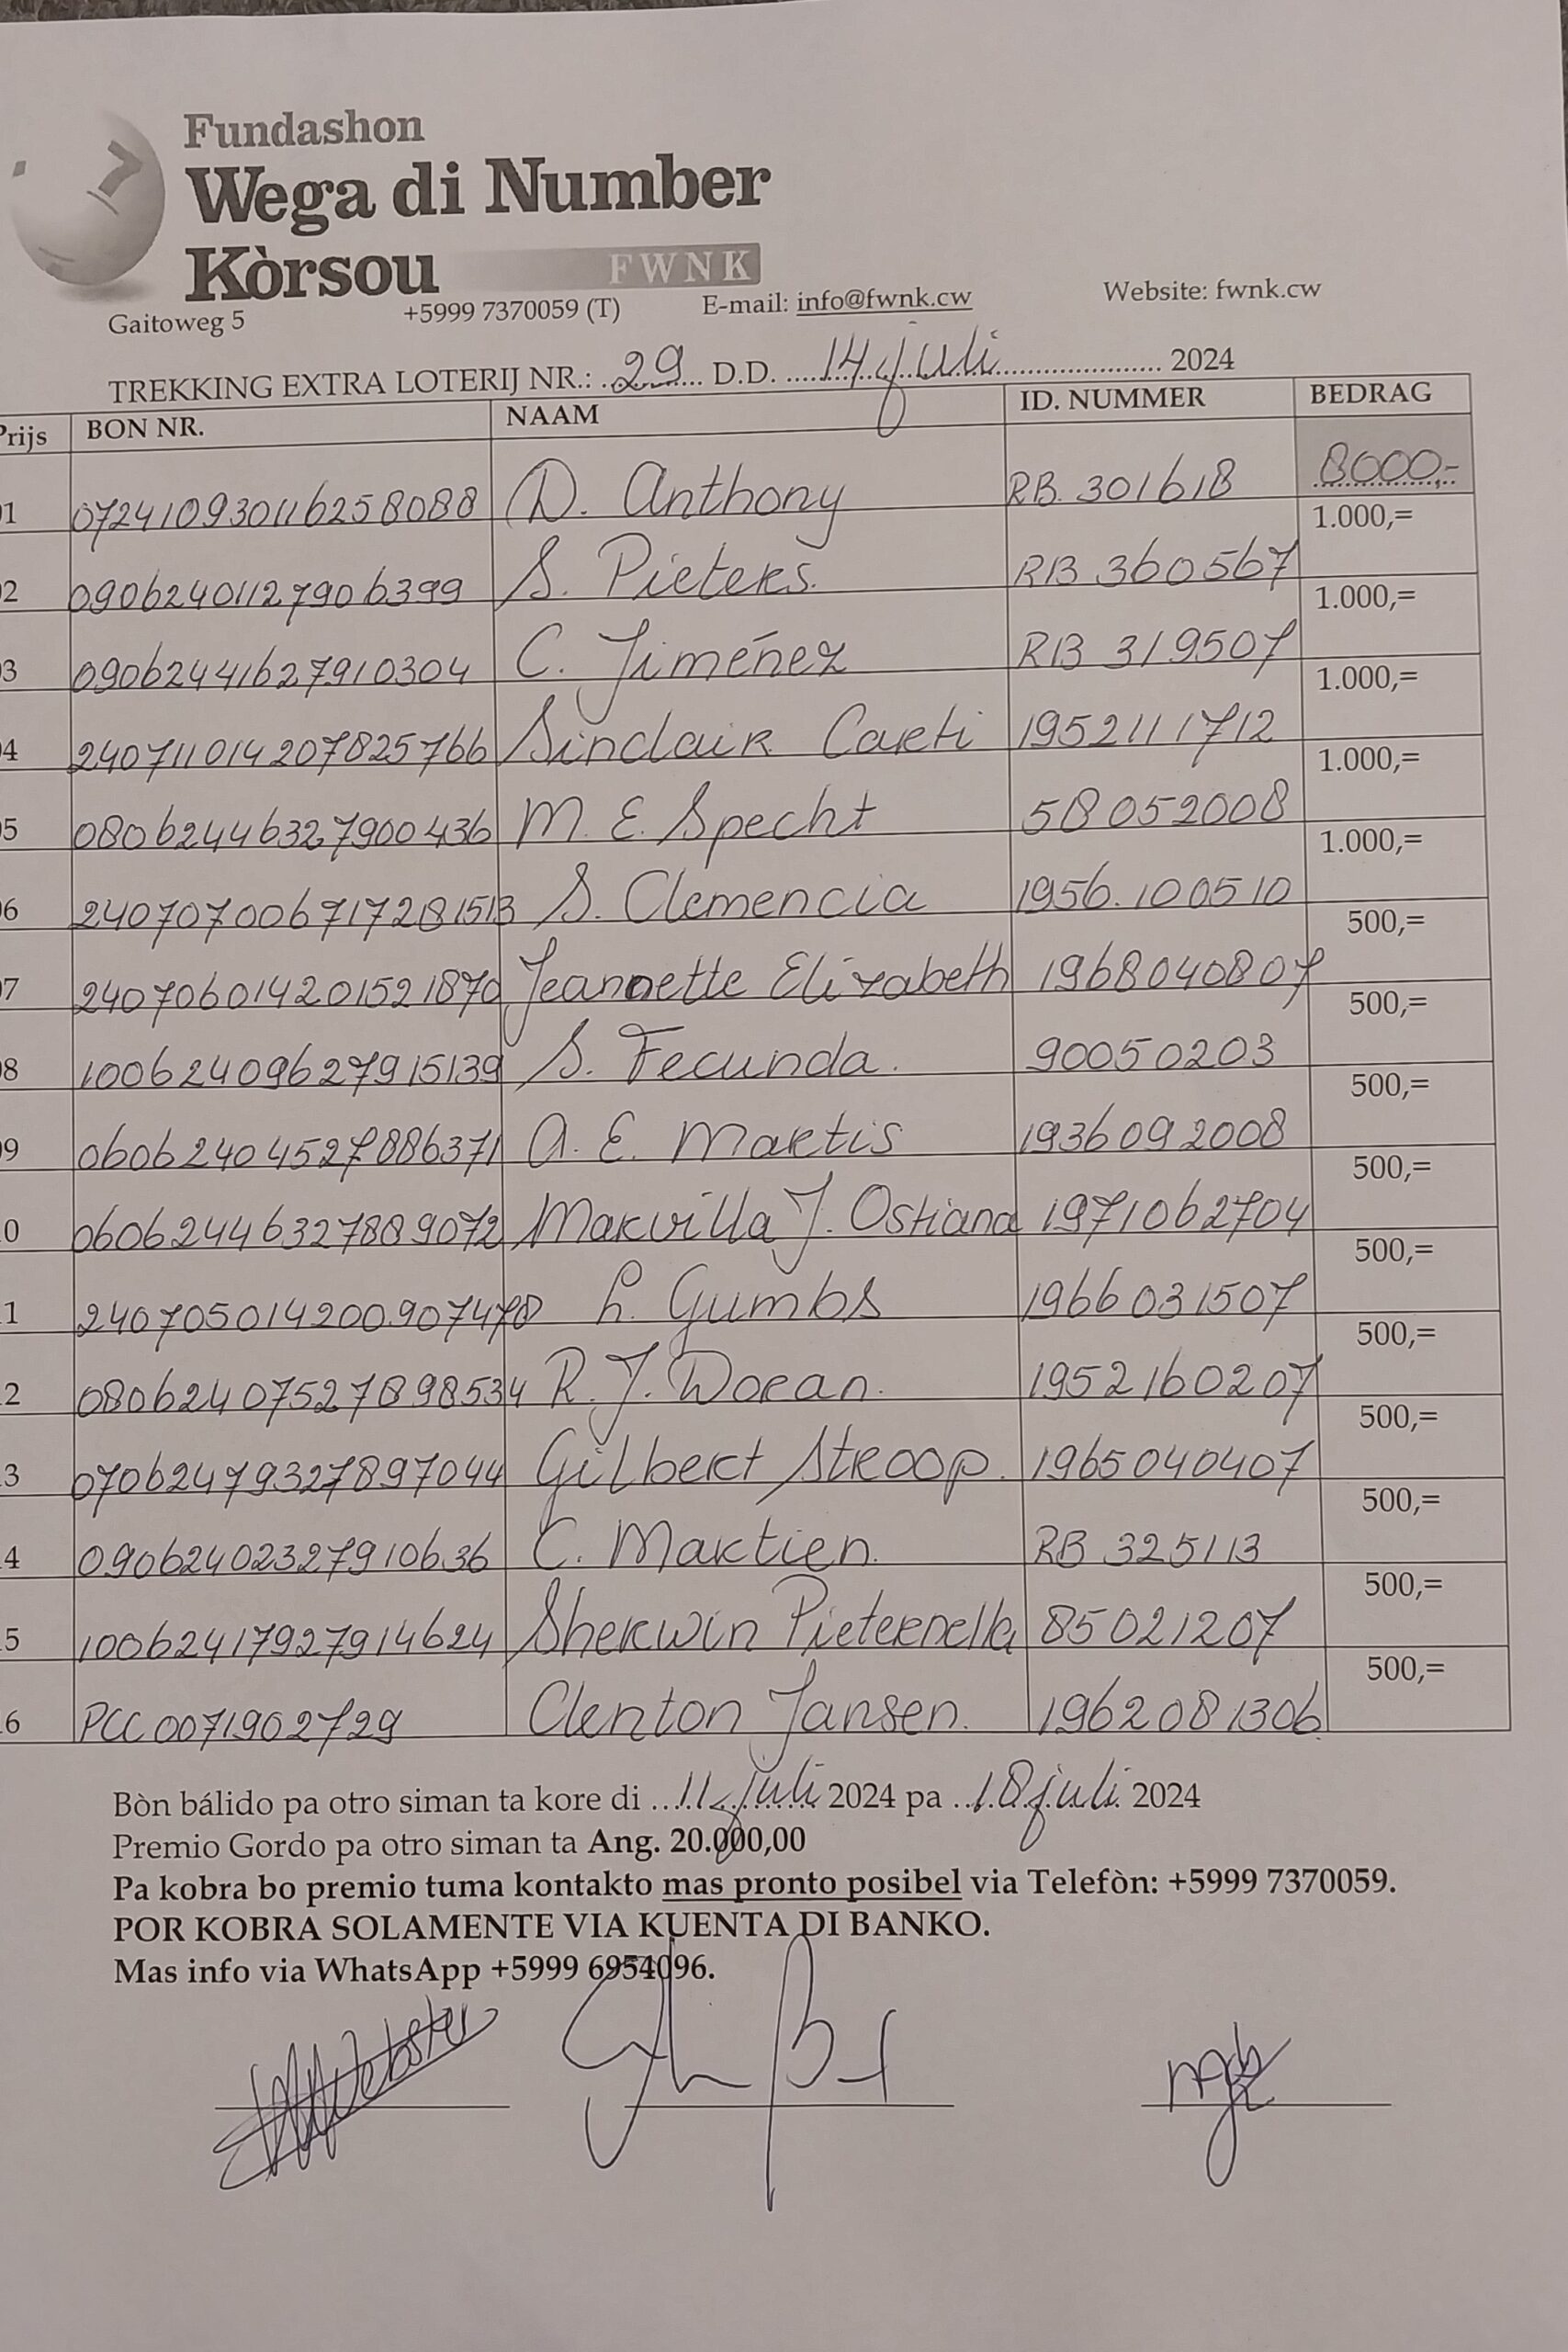 Fundashon
Wega di Number
Kòrsou FWNK
Gaitoweg 5 +5999 7370059 (T) E-mail: info@fwnk.cw Website: fwnk.cw
TREKKING EXTRA LOTERIJ NR.: 29 D.D. 14 juli 2024
Prijs BON NR. NAAM ID. NUMMER BEDRAG
01 07241093011625 8088 D. Anthony RB. 301618 8000,-
02 09062401127906399 S. Pieters. RB 360567 1.000,=
03 09062441627910304 C. Jiménez RB 319507 1.000,=
04 240711014207825766 Sinclair Carti 1952111712 1.000,=
05 08062446327900436 M. E. Specht 58052008 1.000,=
06 2407070067172181513 S. Clemencia 1956.100510 1.000,=
07 240706014201521870 Jeannette Elizabeth 1968040807 500,=
08 10062409627915139 S. Fecunda. 90050203 500,=
09 06062404527886371 A. E. Martis 1936092008 500,=
10 06062446327889072 Marvilla J. Ostiana 1971062704 500,=
11 240705014200907478 L. Gumbs 1966031507 500,=
12 08062407527898534 R. J. Doran. 1952160207 500,=
13 07062479327897044 Gilbert Stroop. 1965040407 500,=
14 09062402327910636 C. Martien. RB 325113 500,=
15 10062417927914624 Sherwin Pieternella 85021207 500,=
16 PCC0071902729 Clenton Jansen. 1962081306 500,=
Bòn bálido pa otro siman ta kore di 11 juli 2024 pa 18 juli 2024
Premio Gordo pa otro siman ta Ang. 20.000,00
Pa kobra bo premio tuma kontakto mas pronto posibel via Telefòn: +5999 7370059.
POR KOBRA SOLAMENTE VIA KUENTA DI BANKO.
Mas info via WhatsApp +5999 6954096.